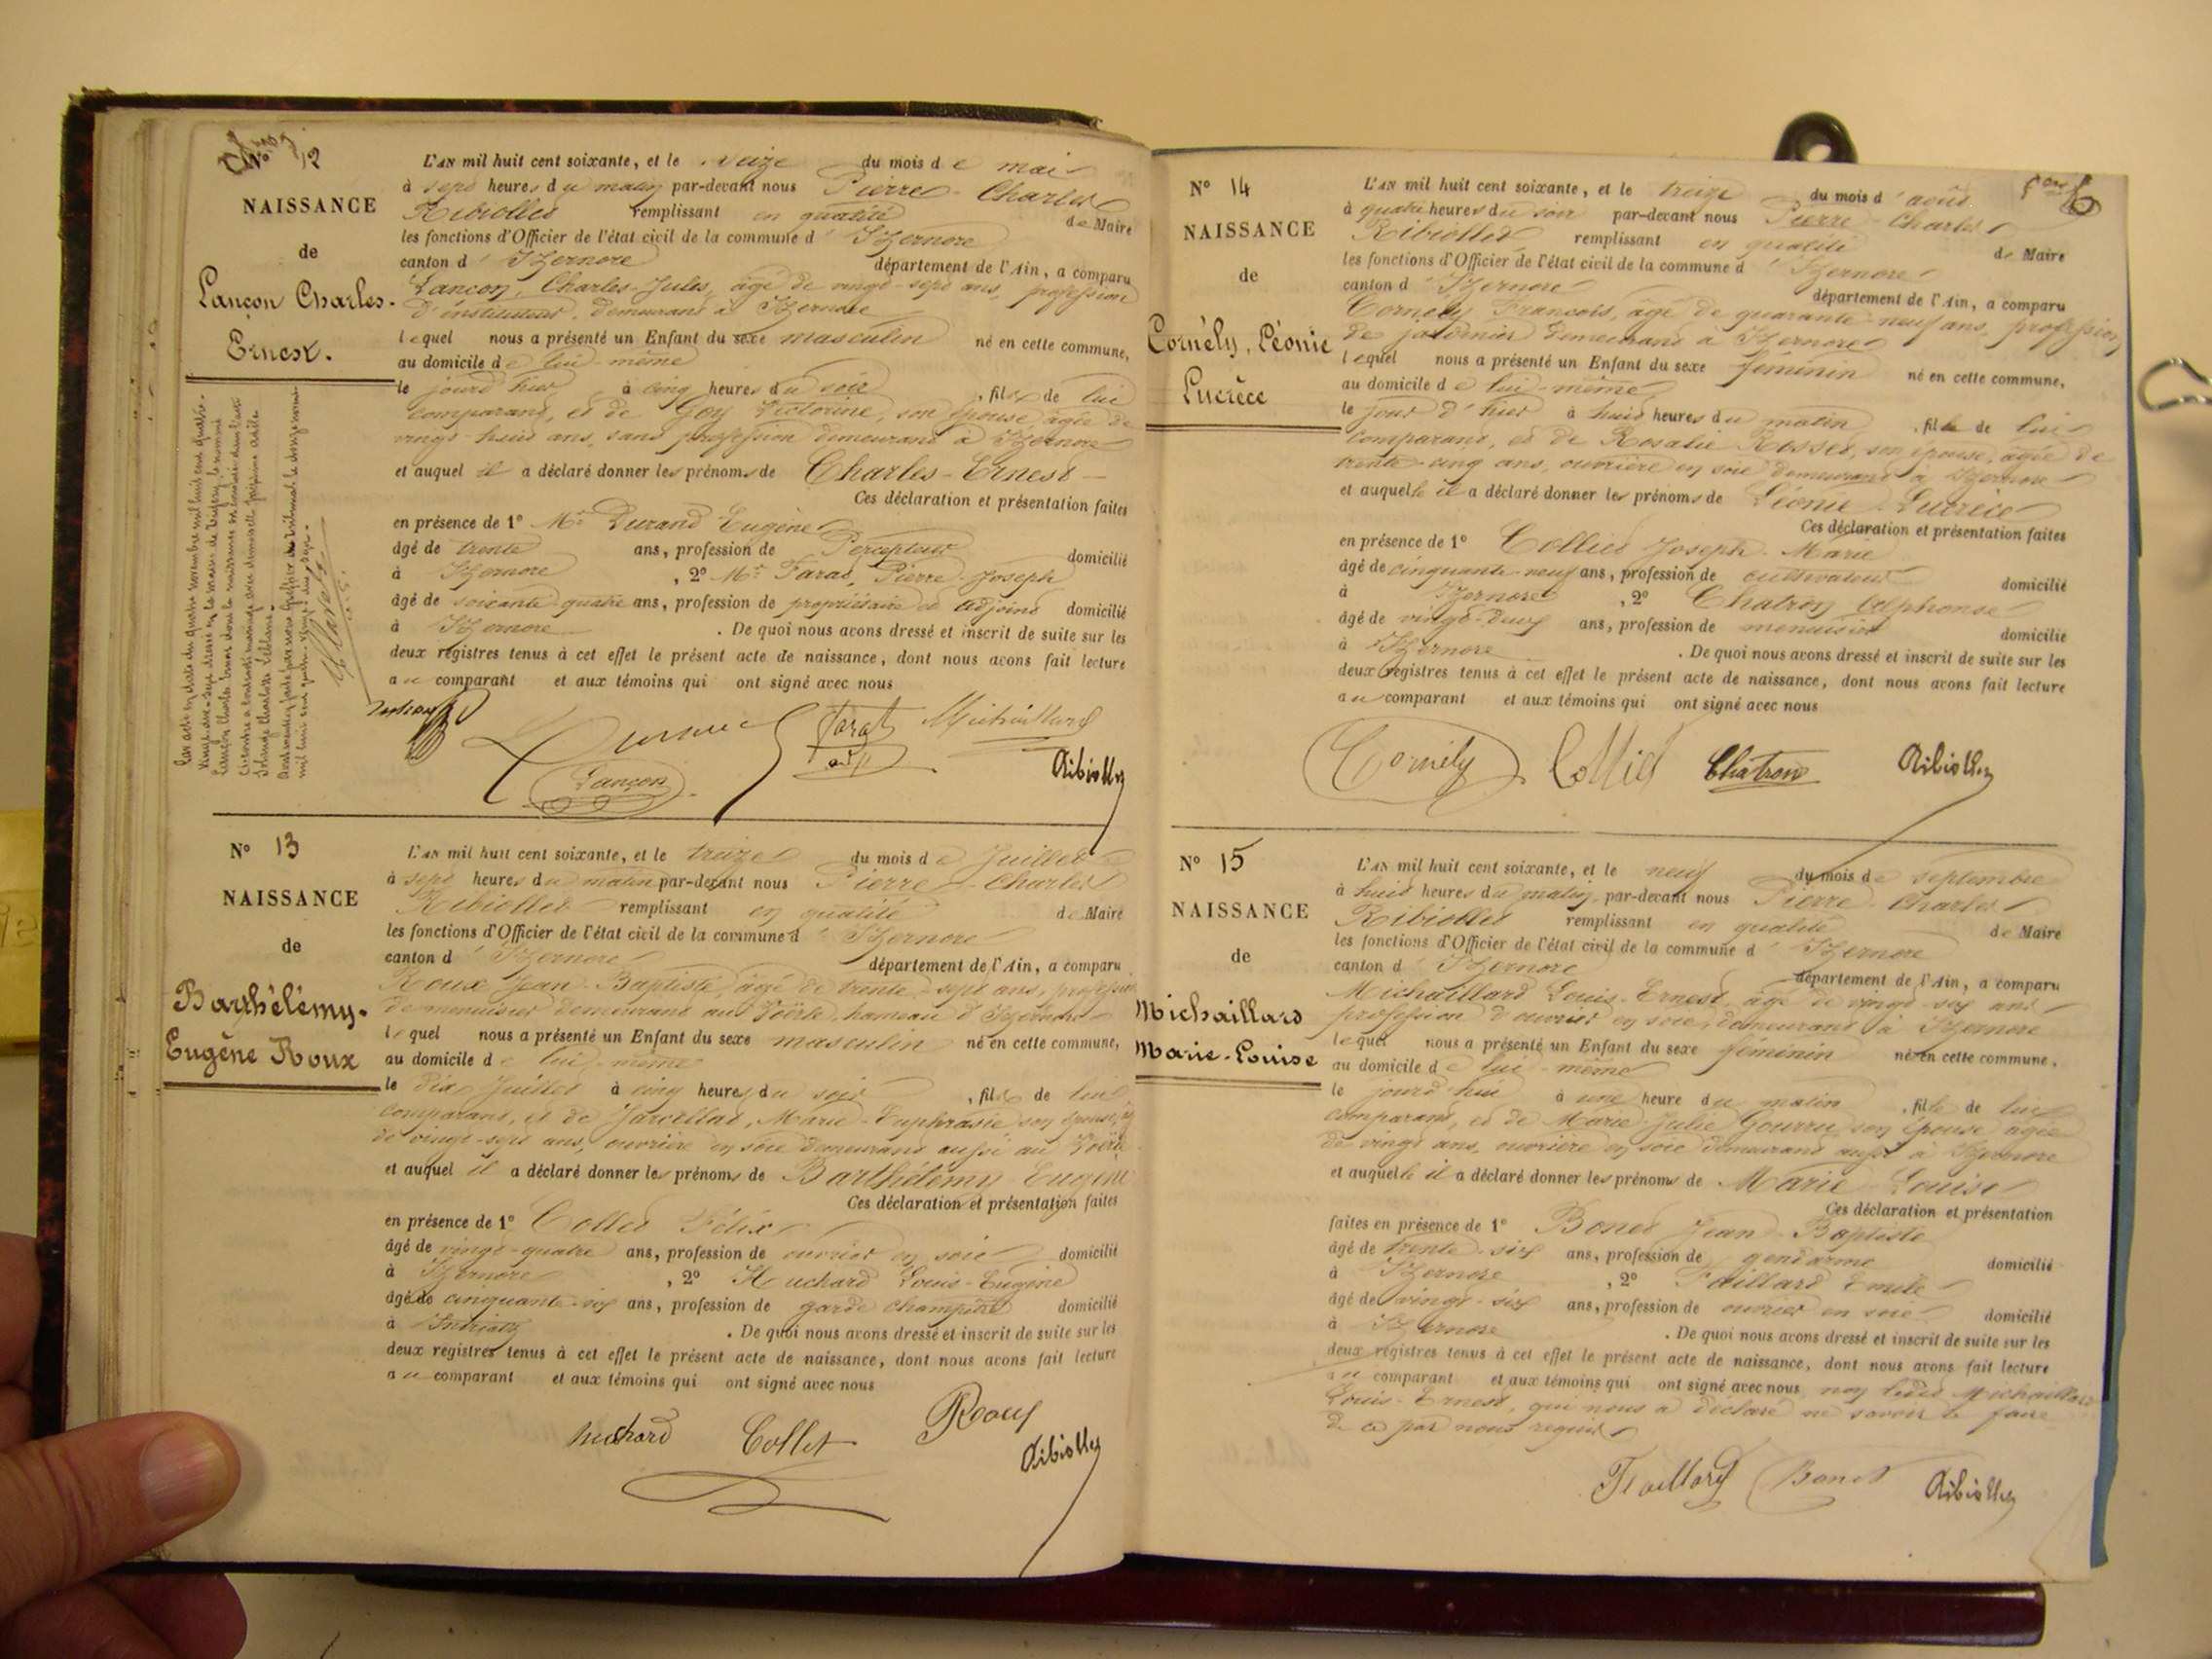 N° 12
NAISSANCE
de
Lançon Charles-
Ernest.
L'AN mil huit cent soixante, et le seize du mois de mai
à sept heures du matin par-devant nous Pierre-Charles
Ribiollet remplissant en qualité de Maire
les fonctions d'Officier de l'état civil de la commune d'Izernore
canton d'Izernore département de l'Ain, a comparu
Lançon, Charles-Jules, âgé de vingt-sept ans, profession
d'instituteur, demeurant à Izernore
lequel nous a présenté un Enfant du sexe masculin né en cette commune,
au domicile de lui-même
le jourd'hier à cinq heures du soir, fils de lui
comparant, et de Goy Victorine, son épouse âgée de
vingt-huit ans, sans profession demeurant à Izernore
et auquel il a déclaré donner les prénoms de Charles-Ernest
Ces déclaration et présentation faites
en présence de 1° Mr Durand Eugène
âgé de trente ans, profession de Percepteur domicilié
à Izernore, 2° Mr Farat, Pierre-Joseph
âgé de soixante-quatre ans, profession de propriétaire et adjoint domicilié
à Izernore. De quoi nous avons dressé et inscrit de suite sur les
deux registres tenus à cet effet le présent acte de naissance, dont nous avons fait lecture
au comparant et aux témoins qui ont signé avec nous
Farat
adj
Michaillard
Lançon
Ribiollet
N° 13
NAISSANCE
de
Barthélémy-
Eugène Roux
L'AN mil huit cent soixante, et le treize du mois de Juillet
à sept heures du matin par-devant nous Pierre-Charles
Ribiollet remplissant en qualité de Maire
les fonctions d'Officier de l'état civil de la commune d'Izernore
canton d'Izernore département de l'Ain, a comparu
Roux Jean-Baptiste, âgé de trente-sept ans, profession
de menuisier demeurant au Voërle, hameau d'Izernore
lequel nous a présenté un Enfant du sexe masculin né en cette commune,
au domicile de lui-même
le dix Juillet à cinq heures du soir, fils de lui
comparant, et de Jarcellat, Marie-Euphrasie son épouse, âgée
de vingt-sept ans, ouvrière en soie demeurant aussi au Voërle
et auquel il a déclaré donner les prénoms de Barthélémy-Eugène
Ces déclaration et présentation faites
en présence de 1° Collet Félix
âgé de vingt-quatre ans, profession de ouvrier en soie domicilié
à Izernore, 2° Huchard Louis-Eugène
âgé de cinquante-six ans, profession de garde champêtre domicilié
à Intriat. De quoi nous avons dressé et inscrit de suite sur les
deux registres tenus à cet effet le présent acte de naissance, dont nous avons fait lecture
au comparant et aux témoins qui ont signé avec nous
huchard Collet Roux
Ribiollet
N° 14
NAISSANCE
de
Cornély, Léonie
Lucrèce
L'AN mil huit cent soixante, et le treize du mois d'août
à quatre heures du soir par-devant nous Pierre-Charles
Ribiollet remplissant en qualité de Maire
les fonctions d'Officier de l'état civil de la commune d'Izernore
canton d'Izernore département de l'Ain, a comparu
Cornély François, âgé de quarante-neuf ans, profession
de jardinier demeurant à Izernore
lequel nous a présenté un Enfant du sexe féminin né en cette commune,
au domicile de lui-même
le jour d'hier à huit heures du matin, fille de lui
comparant, et de Rosalie Rosset, son épouse, âgée de
trente-cinq ans, ouvrière en soie demeurant à Izernore
et auquelle il a déclaré donner les prénoms de Léonie Lucrèce
Ces déclaration et présentation faites
en présence de 1° Collied Joseph-Marie
âgé de cinquante-neuf ans, profession de cultivateur domicilié
à Izernore, 2° Chatron Alphonse
âgé de vingt-deux ans, profession de menuisier domicilié
à Izernore. De quoi nous avons dressé et inscrit de suite sur les
deux registres tenus à cet effet le présent acte de naissance, dont nous avons fait lecture
au comparant et aux témoins qui ont signé avec nous
Cornély Collied Chatron Ribiollet
N° 15
NAISSANCE
de
Michaillard
Marie-Louise
L'AN mil huit cent soixante, et le neuf du mois de septembre
à huit heures du matin, par-devant nous Pierre-Charles
Ribiollet remplissant en qualité de Maire
les fonctions d'Officier de l'état civil de la commune d'Izernore
canton d'Izernore département de l'Ain, a comparu
Michaillard Louis-Ernest, âgé de vingt-six ans
profession d'ouvrier en soie, demeurant à Izernore
lequel nous a présenté un Enfant du sexe féminin né en cette commune,
au domicile de lui-même
le jourd'hui à une heure du matin, fille de lui
comparant, et de Marie-Julie Gourru, son épouse âgée
de vingt ans, ouvrière en soie demeurant aussi à Izernore
et auquelle il a déclaré donner les prénoms de Marie Louise
Ces déclaration et présentation
faites en présence de 1° Bonet Jean-Baptiste
âgé de trente-six ans, profession de gendarme domicilié
à Izernore, 2° Faillard Emile
âgé de vingt-six ans, profession de ouvrier en soie domicilié
à Izernore. De quoi nous avons dressé et inscrit de suite sur les
deux registres tenus à cet effet le présent acte de naissance, dont nous avons fait lecture
au comparant et aux témoins qui ont signé avec nous, non ledit Michaillard
Louis-Ernest, qui nous a déclaré ne savoir le faire
de ce par nous requis
Faillard Bonet Ribiollet